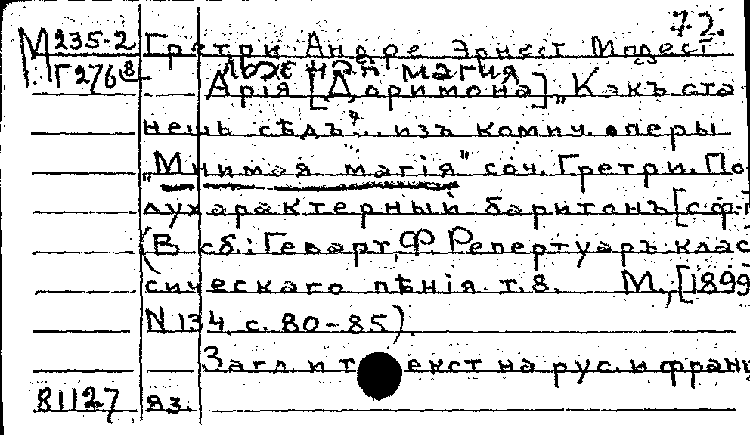 72.
М 235-2 Гретри Андре Эрнест Модест
Г276 8 Ложная магия
Арія [Доримона] „Какъ ста
нешь сѣдъ"... изъ комич. оперы
„Мнимая магія" соч. Гретри. По-
лухарактерный баритонъ [с ф.-п
(В сб.: Геварт, Ф. Репертуаръ клас
сическаго пѣнія т. 8. М., [1899
N 134 с. 80-85).
Загл. и текст на рус. и франц
81127 яз.